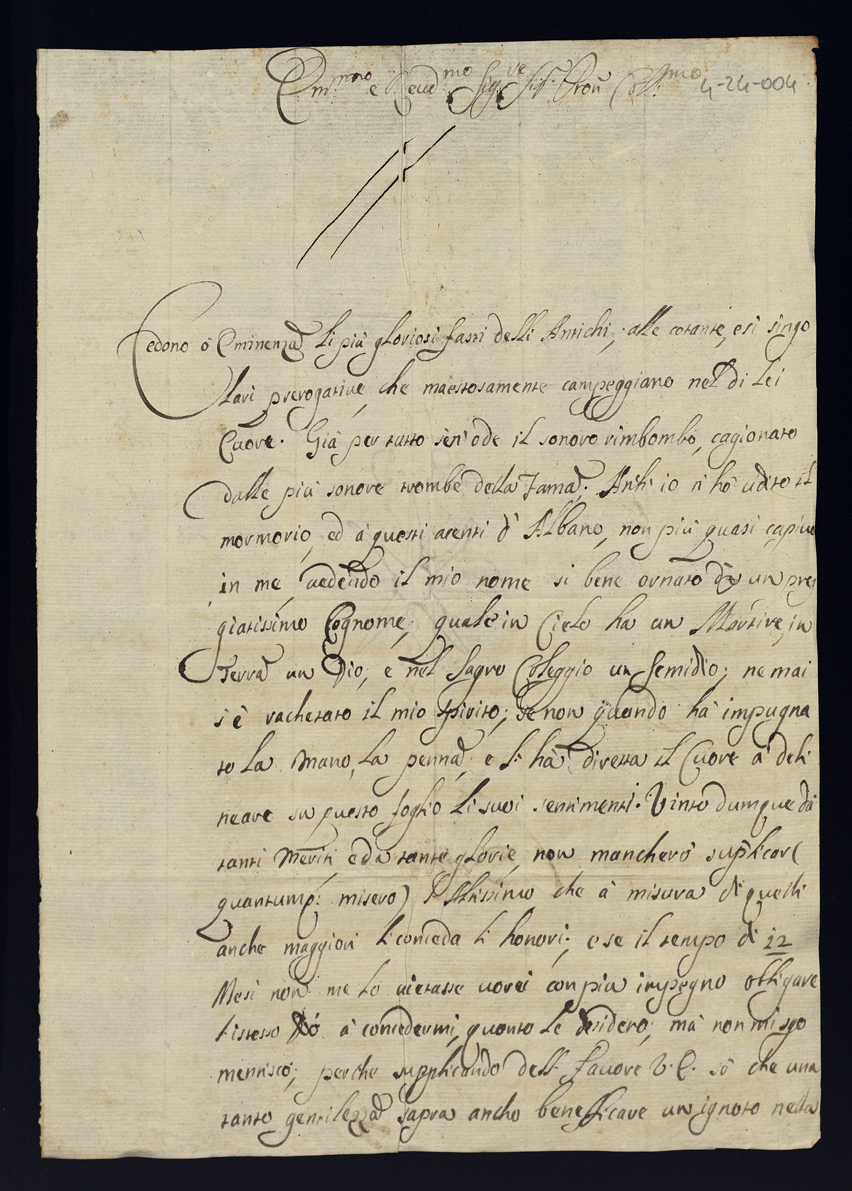 Em.mo e Reud.mo Sig.re Sig. Pron Coll.mo 4-24-004
Cedono ò Eminenza li più gloriosi fasti delli Antichi, alle cotante, e sì singo
lari prerogative, che maestosamente campeggiano nel di Lei
Cuore. Già per tutto sen' ode il sonoro rimbombo, cagionato
dalle più sonore trombe della Fama; Anch' io n' hò udito il
mormorio, ed à questi acenti d' Albano, non più quasi capiuo
in me, uedendo il mio nome si bene ornato da un pre
giatissimo Cognome, quale in Cielo ha un Martire, in
Terra un Dio, e nel Sagro Coleggio un semidio; ne mai
s' è rachetato il mio spirito, se non quando hà impugna
to la mano, la penna, e li hà diretta il Cuore à deli
neare su questo foglio li suoi sentimenti. Vinto dumque dà
tanti Meriti, e da tante glorie, non mancherò suplicar (
quantumq. misero) l' Altissimo che à misura di quelli
anche maggiori li conceda li honori; e se il tempo di 12
Mesi non me lo uietasse uorei con più impegno obligare
l' istesso Dio à concedermi, quanto le desidero; mà non mi sgo
mentisco; perche supplicando dell. fauore V. E. sò che una
tanto gentilezza sapra ancho beneficare un ignoto nella